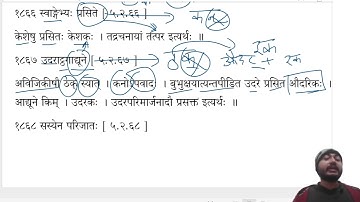 १८६६ स्वाङ्गेभ्यः प्रसिते [ ५.२.६६ ]
केशेषु प्रसितः केशकः । तद्रचनायां तत्पर इत्यर्थः ॥
१८६७ उदराट्ठगाद्यूने [ ५.२.६७ ]
अविजिगीषौ ठक् स्यात् । कनोऽपवादः । बुभुक्षयात्यन्तपीडित उदरे प्रसित औदरिकः ।
आद्यूने किम् । उदरकः । उदरपरिमार्जनादौ प्रसक्त इत्यर्थः ॥
१८६८ सस्येन परिजातः [ ५.२.६८ ]